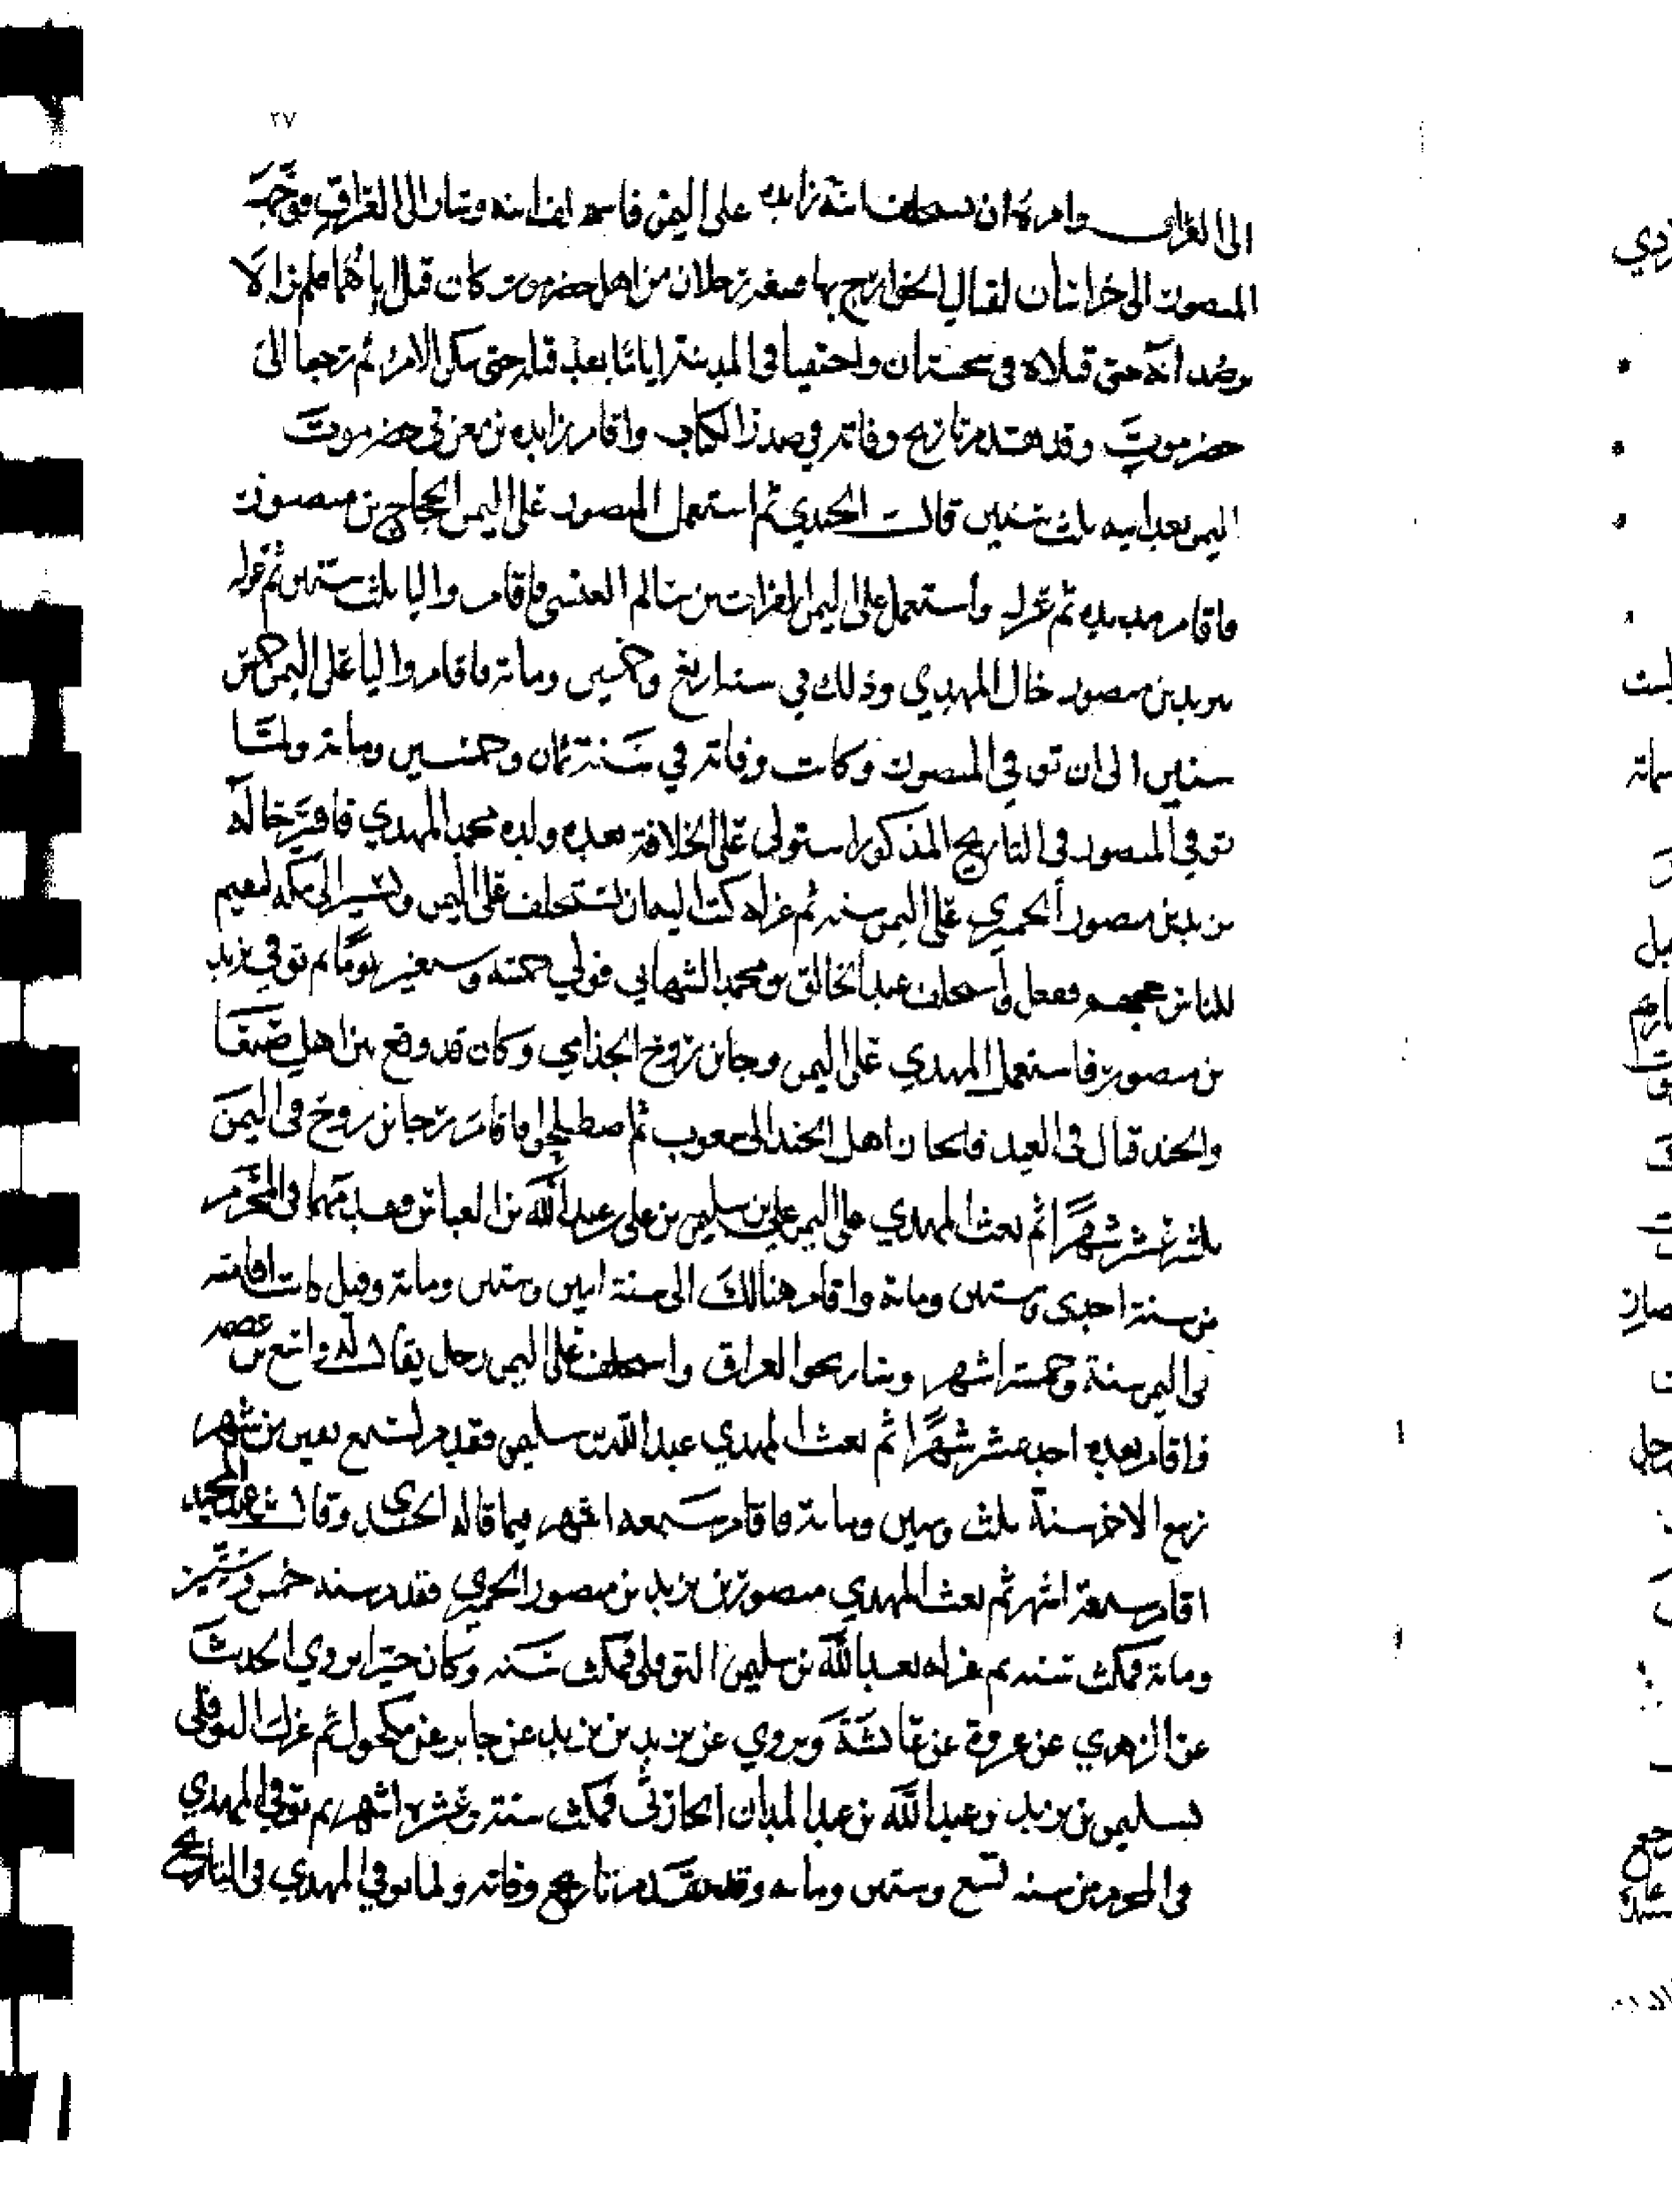 ٢٧
الى العراق وامره ان يستخلف ابنه زايده على اليمن فاستخلف ابنه وسار الى العراق فوجهه
المنصور الى خراسان لقتال الخوارج بها فتبعه رجلان من اهل حضرموت كان قتل اباهما فلم يزالا
يرصدانه حتى قتلاه في سجستان واختفيا في المدينة اياما بعد قتله حتى سكن الامر ثم رجعا الى
حضرموت وقد تقدم تاريخ وفاته في صدر الكتاب واقام زايده بن معن في حضرموت
اليمن بعد ابيه ثلث سنين قال الجندي ثم استعمل المنصور على اليمن الحجاج بن منصور
فاقام مدة ثم عزله واستعمل على اليمن الفرات بن سالم العنسي فاقام واليا ثلث سنين ثم عزله
يزيد بن منصور خال المهدي وذلك في سنة اربع وخمسين ومائة فاقام واليا على اليمن خمس
سنين الى ان توفي المنصور وكانت وفاته في سنة ثمان وخمسين ومائة ولما
توفي المنصور في التاريخ المذكور استولى على الخلافة بعده ولده محمد المهدي فاقر خاله
يزيد بن منصور الحميري على اليمن سنه ثم عزله كتب اليه ان يستخلف على اليمن ويسير الى مكه ليقيم
للناس حجهم ففعل واستخلف عبد الخالق بن محمد الشهابي فولي خمسه وسبعين يوما ثم توفي يزيد
بن منصور فاستعمل المهدي على اليمن رجا بن روح الجذامي وكان قد وقع بين اهل صنعا
والجند قتال في العيد فانحاز اهل الجند الى ثم اصطلحوا فاقام رجا بن روح في اليمن
ثلثة عشر شهرا ثم بعث المهدي على اليمن علي بن سليمن بن علي بن عبد الله بن العباس فقدمها في المحرم
من سنة احدى وستين ومائة واقام هنالك الى سنة اثنين وستين ومائة وقيل كانت اقامته
في اليمن سنة وخمسة اشهر وسار نحو العراق واستخلف على اليمن رجل يقال له واسع بن عصمه
فاقام بعده احد عشر شهرا ثم بعث المهدي عبد الله بن سليمن فقدم لتسع بقين من شهر
ربيع الاخر سنة ثلث وستين ومائة فاقام سبعه اشهر فيما قاله الجندي وقال عبد المجيد
اقام سبعة اشهر ثم بعث المهدي منصور بن يزيد بن منصور الحميري فقدم سنة خمس وستين
ومائة فمكث سنه ثم عزله بعبد الله بن سليمن النوفلي فمكث سنه وكان خيرا يروي الحديث
عن الزهري عن عروة عن عائشة ويروي عن يزيد بن يزيد عن جابر عن مكحول ثم عزل النوفلي
بسليمن بن يزيد بن عبد الله بن عبد المدان الحارثي فمكث سنة وعشرة اشهر ثم توفي المهدي
في المحرم من سنه تسع وستين ومائه وقد تقدم تاريخ وفاته ولما توفي المهدي في التاريخ